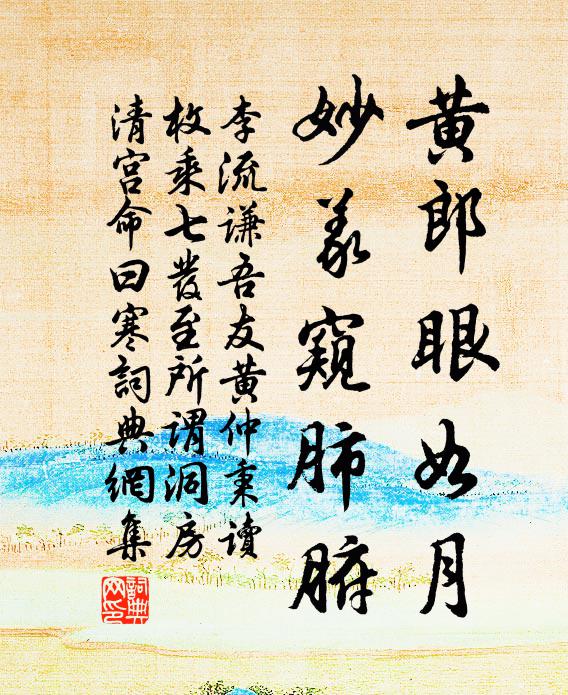 黄郎眼如月
妙義窺肺腑
李流谦吾友黄仲秉读
枚乘七發至所谓洞房
清宫命曰寒詞典網集
詞典
网印